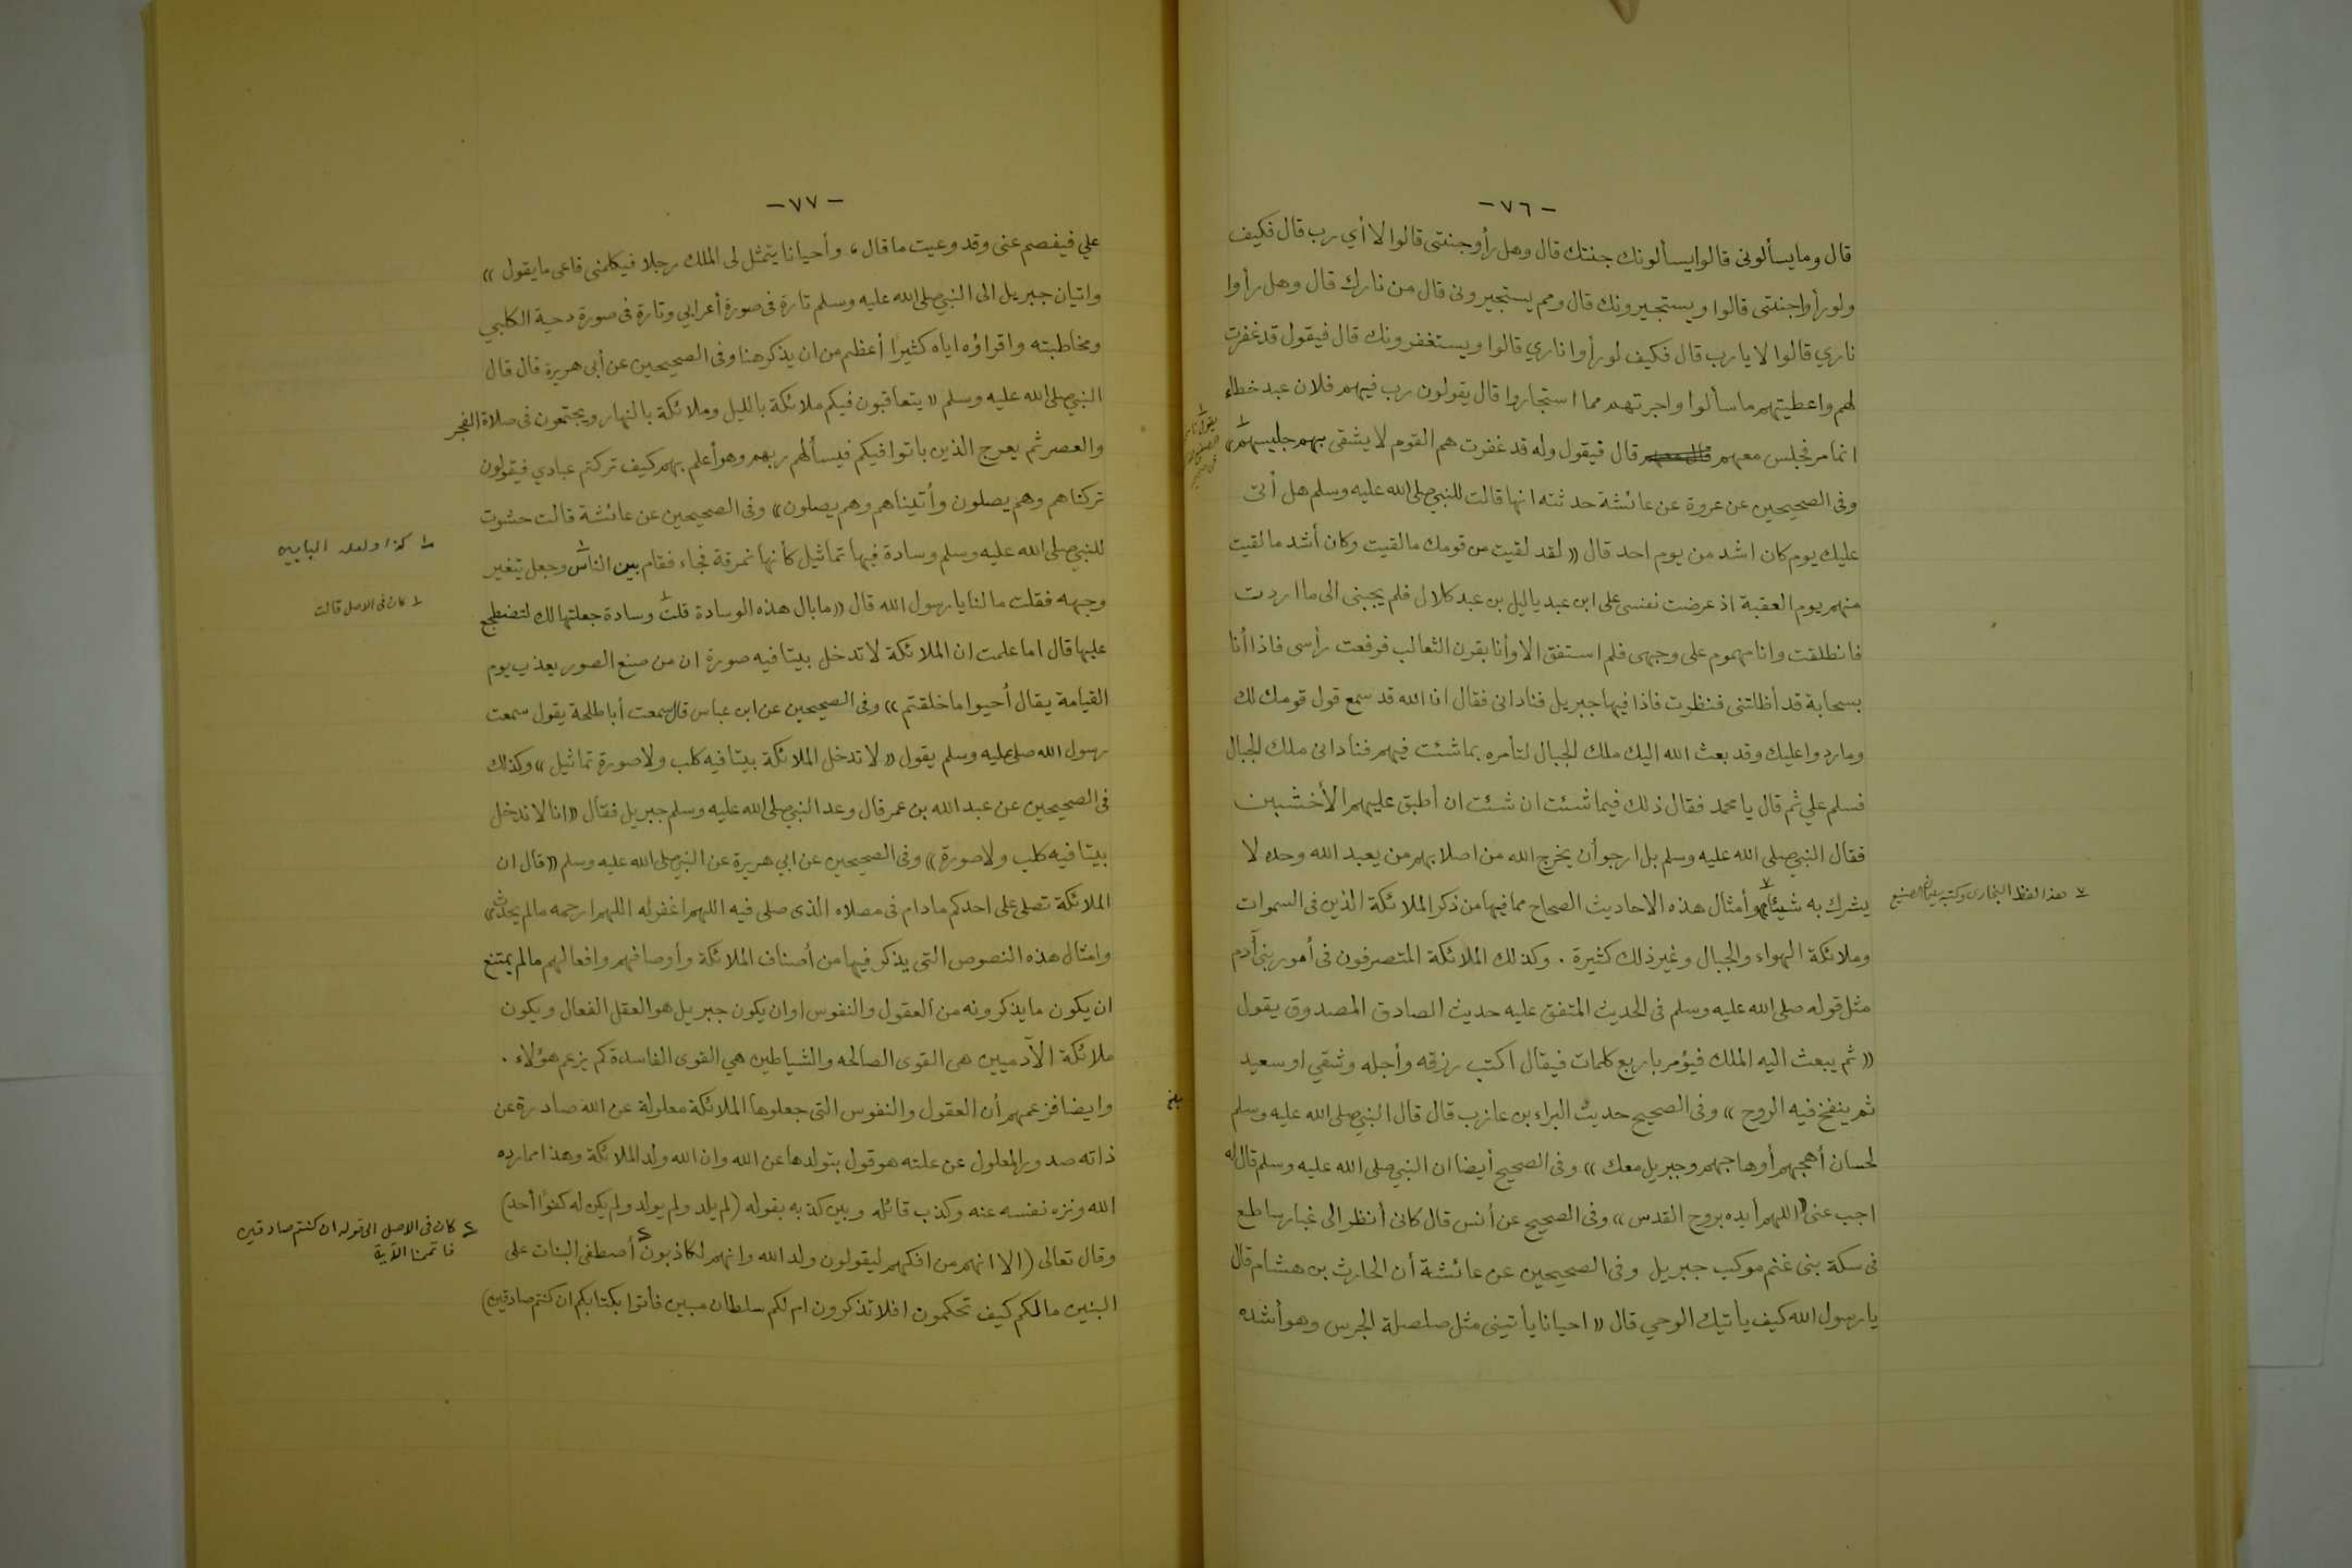 - ٧٦ -
قال وما يسألونى قالوا يسألونك جنتك قال وهل رأوا جنتى قالوا لا أي رب قال فكيف
ولو رأوا جنتى قالوا ويستجيرونك قال ومم يستجيرونى قال من نارك قال وهل رأوا
ناري قالوا لا يا رب قال فكيف لو رأوا ناري قالوا ويستغفرونك قال فيقول قد غفرت
لهم واعطيتهم ما سألوا واجرتهم مما استجاروا قال يقولون رب فيهم فلان عبد خطاء
انما مر فجلس معهم قال فيقول وله قد غفرت هم القوم لا يشقى بهم جليسهم»
وفى الصحيحين عن عروة عن عائشة حدثته انها قالت للنبي صلى الله عليه وسلم هل أتى
عليك يوم كان اشد من يوم احد قال «لقد لقيت من قومك ما لقيت وكان أشد ما لقيت
منهم يوم العقبة اذ عرضت نفسى على ابن عبد ياليل بن عبد كلال فلم يجبنى الى ما اردت
فانطلقت وانا مهموم على وجهى فلم استفق الا وأنا بقرن الثعالب فرفعت رأسى فاذا أنا
بسحابة قد أظلتنى فنظرت فاذا فيها جبريل فنادانى فقال ان الله قد سمع قول قومك لك
وما ردوا عليك وقد بعث الله اليك ملك الجبال لتأمره بما شئت فيهم فنادانى ملك الجبال
فسلم علي ثم قال يا محمد فقال ذلك فيما شئت ان شئت ان أطبق عليهم الأخشبين
فقال النبي صلى الله عليه وسلم بل ارجو أن يخرج الله من اصلابهم من يعبد الله وحده لا
يشرك به شيئا» وأمثال هذه الاحاديث الصحاح مما فيها من ذكر الملائكة الذين فى السموات
٧ هذا لفظ البخارى
وملائكة الهواء والجبال وغير ذلك كثيرة . وكذلك الملائكة المتصرفون فى أمور بنى آدم
مثل قوله صلى الله عليه وسلم فى الحديث المتفق عليه حديث الصادق المصدوق يقول
«ثم يبعث اليه الملك فيؤمر باربع كلمات فيقال اكتب رزقه وأجله وشقي او سعيد
ثم ينفخ فيه الروح» وفى الصحيح حديث البراء بن عازب قال قال النبي صلى الله عليه وسلم
لحسان أهجهم أو هاجهم وجبريل معك» وفى الصحيح أيضا ان النبي صلى الله عليه وسلم قال له
اجب عنى اللهم أيده بروح القدس» وفى الصحيح عن أنس قال كانى أنظر الى غبار ساطع
فى سكة بنى غنم موكب جبريل وفى الصحيحين عن عائشة أن الحارث بن هشام قال
يا رسول الله كيف يأتيك الوحي قال «احيانا يأتينى مثل صلصلة الجرس وهو أشده
- ٧٧ -
علي فيفصم عنى وقد وعيت ما قال، وأحيانا يتمثل لى الملك رجلا فيكلمنى فاعى ما يقول»
واتيان جبريل الى النبي صلى الله عليه وسلم تارة فى صورة أعرابي وتارة فى صورة دحية الكلبي
ومخاطبته واقراؤه اياه كثيرا أعظم من ان يذكر هنا وفى الصحيحين عن أبى هريرة قال قال
النبي صلى الله عليه وسلم «يتعاقبون فيكم ملائكة بالليل وملائكة بالنهار ويجتمعون فى صلاة الفجر
والعصر ثم يعرج الذين باتوا فيكم فيسألهم ربهم وهو أعلم بهم كيف تركتم عبادي فيقولون
تركناهم وهم يصلون وأتيناهم وهم يصلون» وفى الصحيحين عن عائشة قالت حشوت
للنبي صلى الله عليه وسلم وسادة فيها تماثيل كأنها نمرقة فجاء فقام بين الناس وجعل يتغير
١ كذا ولعله البابين
وجهه فقلت ما لنا يا رسول الله قال «ما بال هذه الوسادة قلت وسادة جعلتها لك لتضطجع
كان فى الاصل قالت
عليها قال اما علمت ان الملائكة لا تدخل بيتا فيه صورة ان من صنع الصور يعذب يوم
القيامة يقال أحيوا ما خلقتم» وفى الصحيحين عن ابن عباس قال سمعت أبا طلحة يقول سمعت
رسول الله صلى عليه وسلم يقول «لا تدخل الملائكة بيتا فيه كلب ولا صورة تماثيل» وكذلك
فى الصحيحين عن عبد الله بن عمر قال وعد النبي صلى الله عليه وسلم جبريل فقال «انا لا ندخل
بيتا فيه كلب ولا صورة» وفى الصحيحين عن ابي هريرة عن النبي صلى الله عليه وسلم «قال ان
الملائكة تصلى على احدكم مادام فى مصلاه الذى صلى فيه اللهم اغفر له اللهم ارحمه مالم يحدث»
وامثال هذه النصوص التى يذكر فيها من أصناف الملائكة وأوصافهم وافعالهم مالم يمتنع
ان يكون ما يذكرونه من العقول والنفوس او ان يكون جبريل هو العقل الفعال ويكون
ملائكة الآدميين هى القوى الصالحه والشياطين هي القوى الفاسدة كم يزعم هؤلاء .
وايضا فزعمهم أن العقول والنفوس التى جعلوها الملائكة معلولة عن الله صادرة عن
ذاته صدور المعلول عن علته هو قول بتولدها عن الله وان الله ولد الملائكة وهذا مما رده
الله ونزه نفسه عنه وكذب قائله وبين كذبه بقوله (لم يلد ولم يولد ولم يكن له كفوا أحد)
وقال تعالى (الا انهم من افكهم ليقولون ولد الله وانهم لكاذبون أصطفى البنات على
٤ كان فى الاصل الى قوله ان كنتم صادقين
فاتممنا الآية
البنين مالكم كيف تحكمون افلا تذكرون ام لكم سلطان مبين فأتوا بكتابكم ان كنتم صادقين)